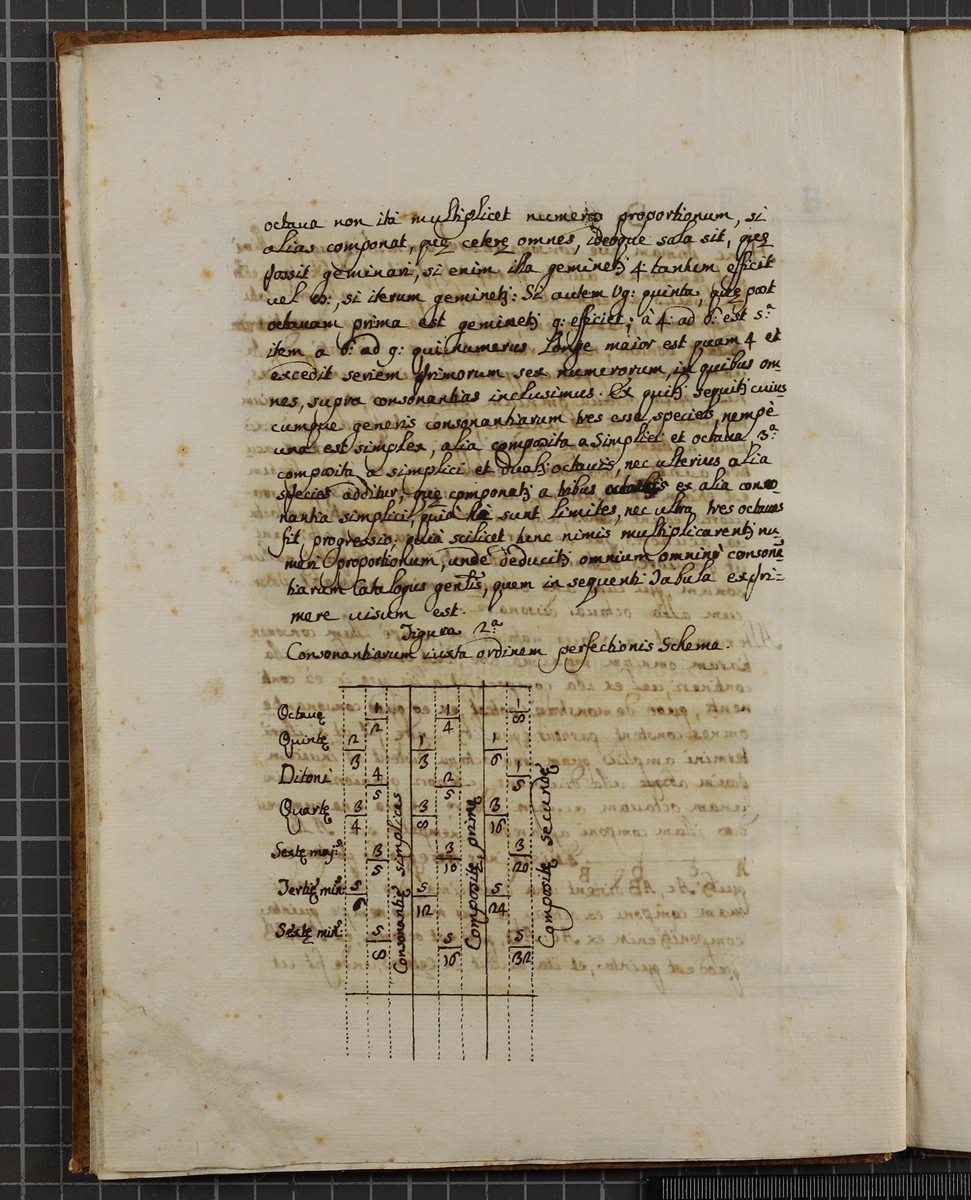 octaua non ita multiplicet numeros proportionum, si
alias componat, quę ceterę omnes, ideoque sola sit, quę
possit geminari, si enim illa geminetʒ 4 tantum efficit
uel 8:, si iterum geminetʒ: Si autem Vg: quinta, quę post
octauam prima est geminetʒ 9: efficiet; à 4: ad 6: est 5.ª
item a 6: ad 9: qui numerus longe maior est quam 4 et
excedit seriem primorum sex numerorum, in quibus om
nes, supra consonantias inclusimus. Ex quibʒ sequitʒ cuius
cumque generis consonantiarum tres esse species, nempè
una est simplex, alia composita a Simplici et octaua, 3.ª
composita a simplici et duabʒ octauis, nec ulterius alia
species additur, quę componatʒ a tribus octabis ex alia conso-
nantia simplici, quià hi sunt limites, nec ultra tres octauas
fit progressio; quià scilicet tunc nimis multiplicarentʒ nu
meri proportionum, unde deducitʒ omnium omninò consonā
tiarum Catalogus genlis, quem in sequenti Tabula expri-
mere uisum est.
Figura 2.ª
Consonantiarum iuxta ordinem perfectionis Schema.
Octauę 1/2 1/4 1/8
Quintę 2/3 1/3 1/6
Ditoni 4/5 2/5 1/5
Quartę 3/4 3/8 3/16
Sextę maj.s 3/5 3/10 3/20
Tertię min.s 5/6 5/12 5/24
Sextę min.s 5/8 5/16 5/32
Consonantię simplices
Compositę primę
Compositę secundę